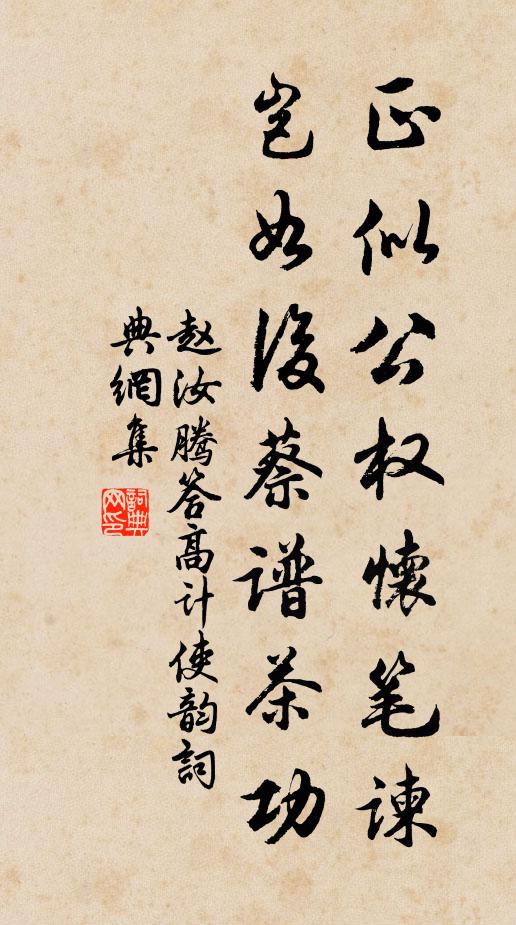 正似公权懷笔諫
岂如後蔡谱茶功
赵汝腾答高计使韵詞
典網集
詞典网印